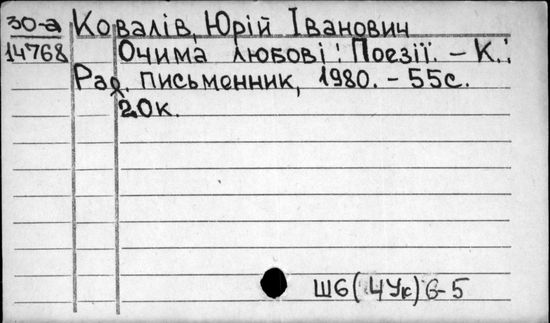 30-а Ковалів, Юрій Іванович
14768 Очима любові: Поезії. – К.:
Рад. письменник, 1980. – 55с.
20к.
Ш6(4Ук)6-5